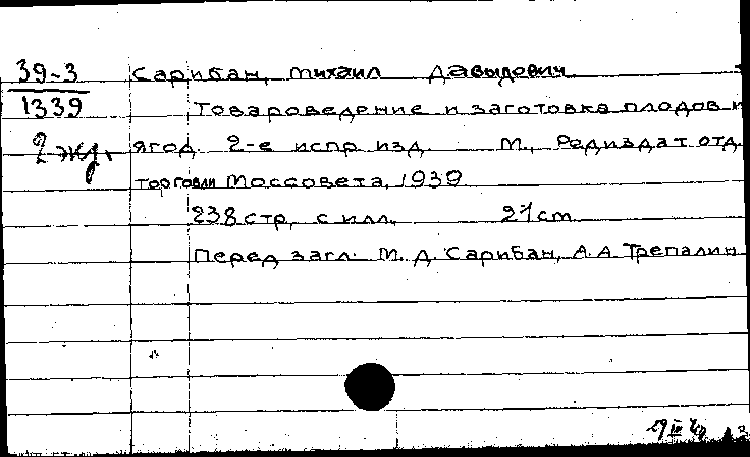 39-3 Сарибан, Михаил Давыдович
1339 Товароведение и заготовка плодов и
2 экз. ягод. 2-е испр. изд. М., Редиздат отд.
торговли Моссовета, 1939
238 стр, с илл. 21 cm
Перед загл. М. Д. Сарибан, А. А. Трепалин